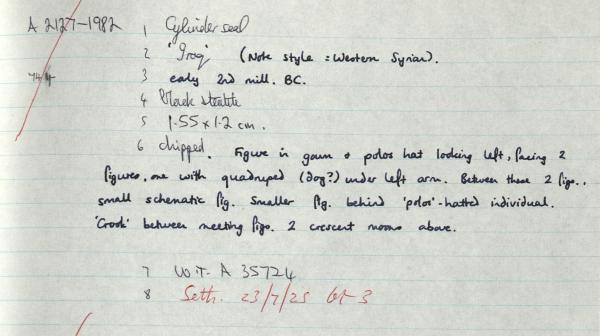 A 2127-1982 1 Cylinder seal
2 'Iraq' (Note style = Western Syrian).
3 early 2nd mill. BC.
4 Black steatite
5 1.55 x 1.2 cm.
6 chipped. Figure in gown & polos hat looking left, facing 2
figures, one with quadruped (dog?) under left arm. Between these 2 figs.,
small schematic fig. Smaller fig. behind 'polos'-hatted individual.
'Crook' between meeting figs. 2 crescent moons above.
7 Wt. A 35724
8 Seth. 23/7/25 lot 3